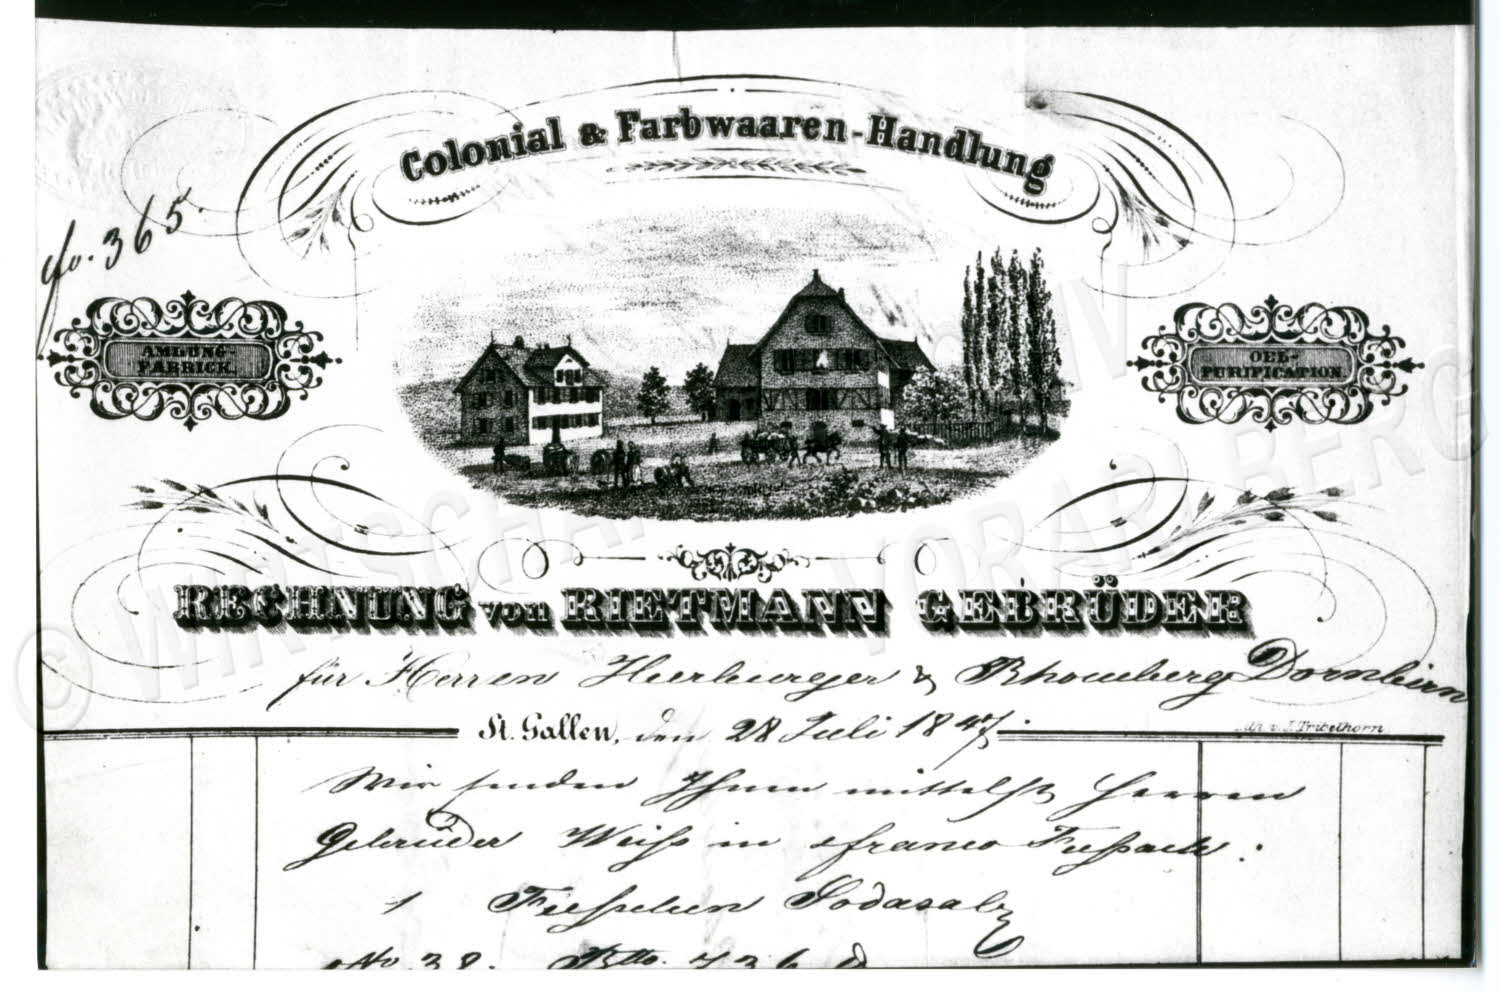 Colonial & Farbwaaren-Handlung
fo. 365.
AMLUNG-
FABRICK.
OEL-
PURIFICATION.
RECHNUNG von RIETMANN GEBRÜDER
für Herren Herburger & Rhomberg Dornbirn
St. Gallen, den 28 Juli 1847.
Lith. v. J. Tribelhorn
Wir senden Ihnen mittelst Herren
Gebrüder Weiss in franco
1 Sodasalz
No. 38. Btto. 736
© WIRTSCHAFTSARCHIV VORARLBERG